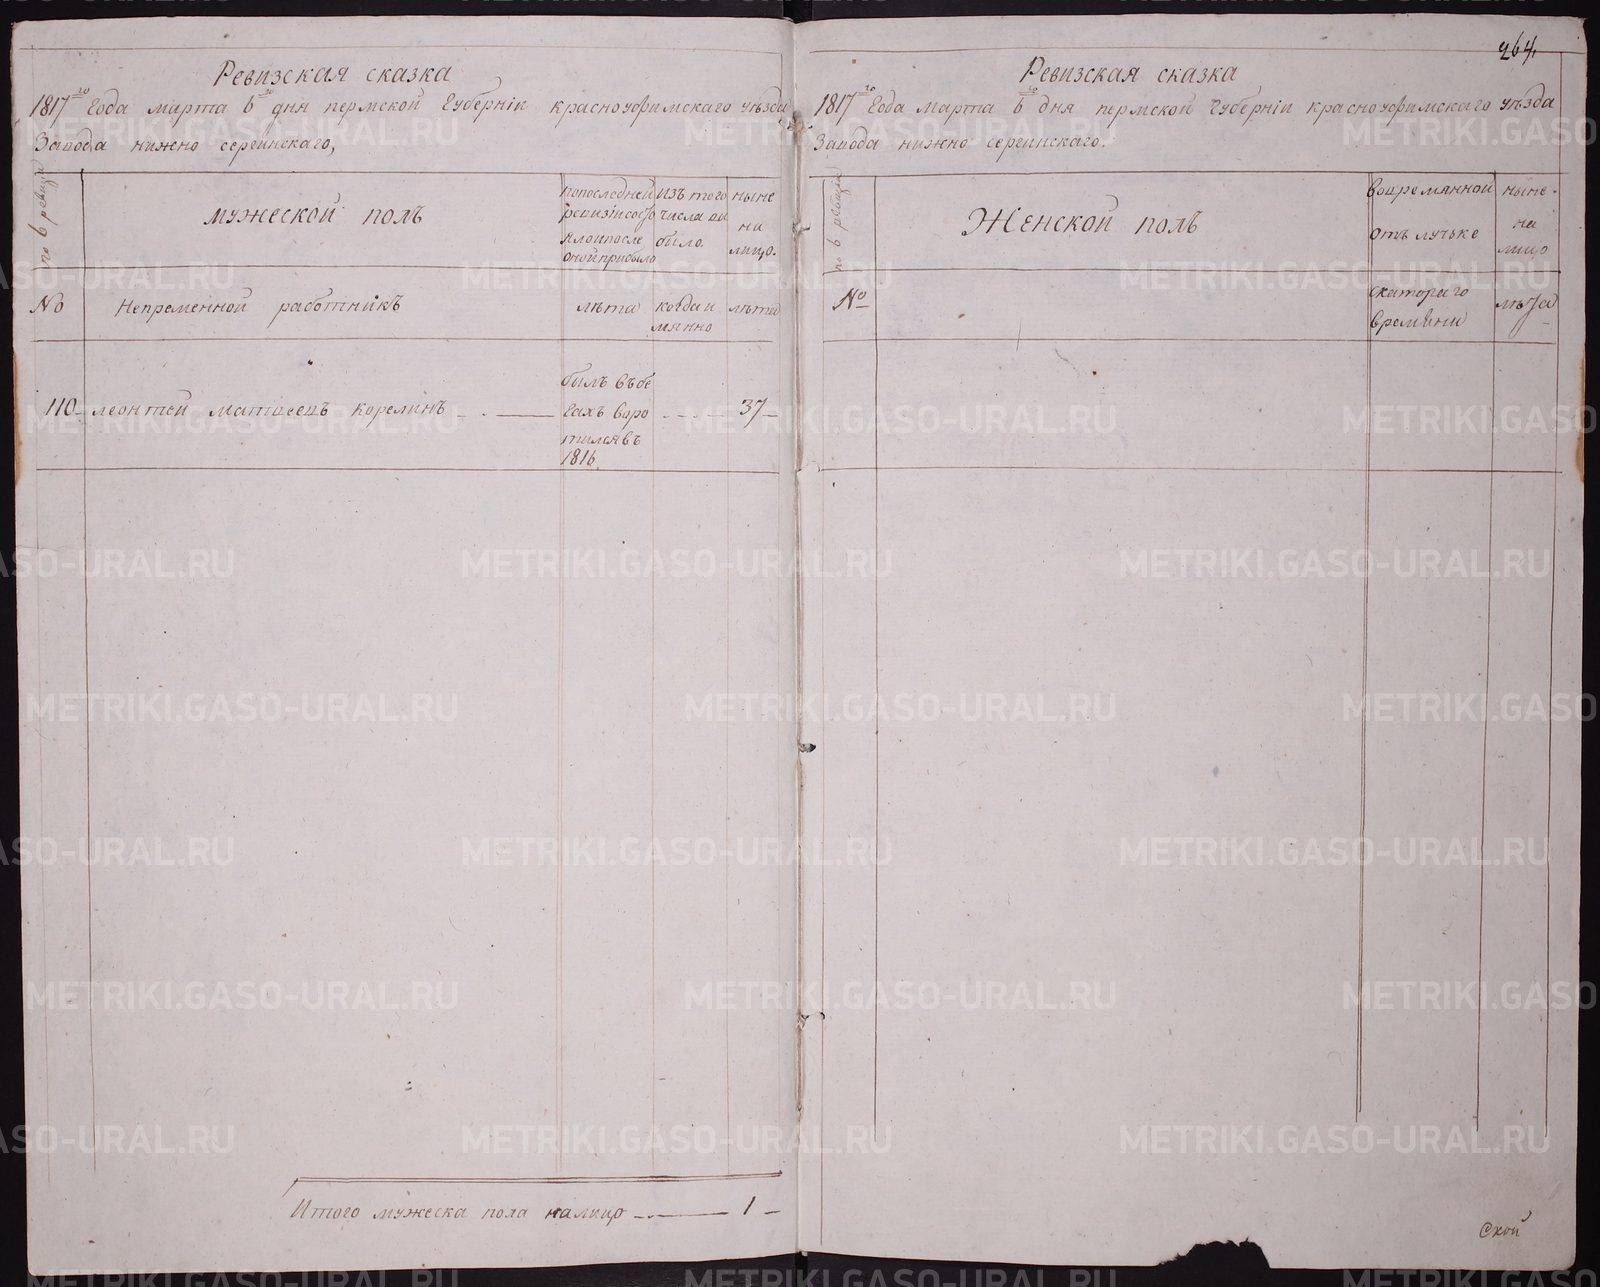 Ревизская сказка
1817го Года марта 6го дня пермской Губерніи красноуфимскаго уѣзда
Завода нижно сергинскаго,
по 6 ревизи
мужеской полъ
попоследней
ревизіи состо
ялоипосле
онойприбыло
изъ того
числа вы
было.
ныне
на
лицо.
No
Непременной работникъ
лѣта
когда и
мянно
лѣта
110 леонтей матвеевъ корелинъ
былъ въбе
гахъ воро
тилсявъ
1816
37
Итого мужеска пола налицо 1
264.
Ревизская сказка
1817го Года марта 6го дня пермской Губерніи красноуфимскаго уѣзда
Завода нижно сергинскаго.
по 6 ревизи
Женской полъ
вовремянной
отълучьке
ныне
на
лицо
No
скатораго
времяни
лѣта
Ской
METRIKI.GASO-URAL.RU